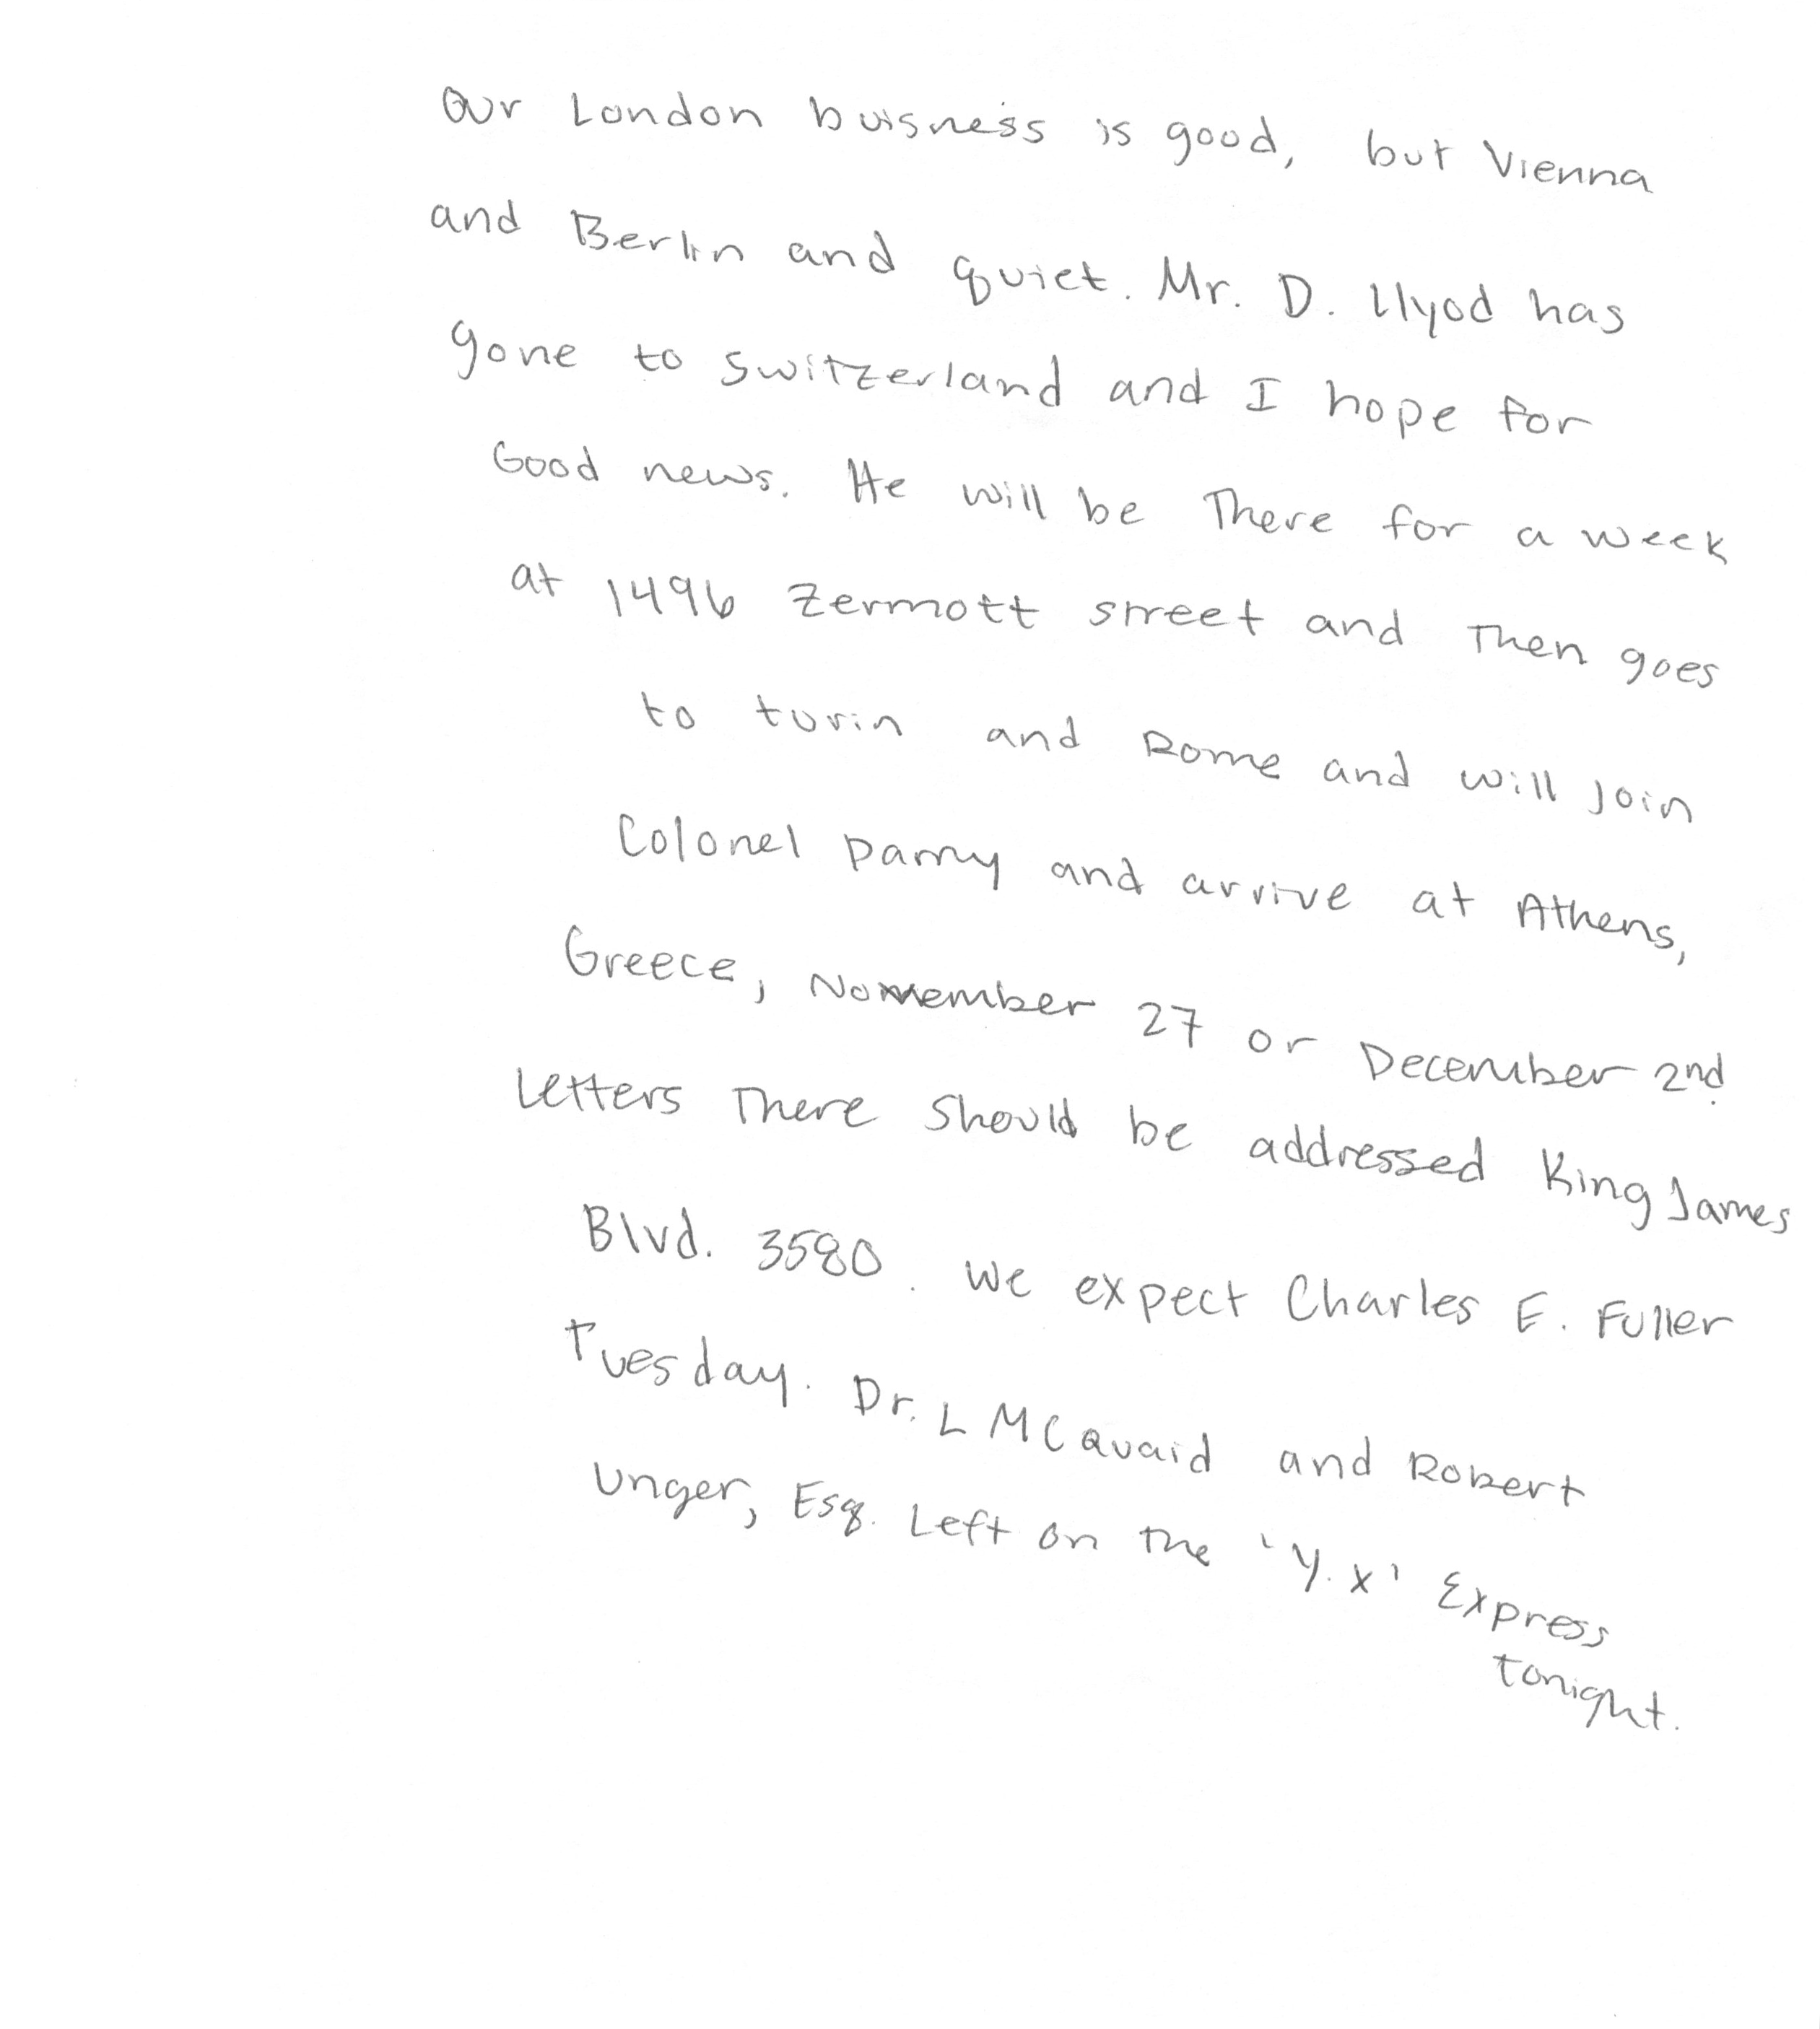 Our London buisness is good, but Vienna
and Berlin and quiet. Mr. D. Llyod has
gone to Switzerland and I hope for
Good news. He will be There for a week
at 1496 Zermott street and Then goes
to turin and Rome and will join
Colonel Parry and arrive at Athens,
Greece, November 27 or December 2nd.
Letters There Should be addressed King James
Blvd. 3580. We expect Charles E. Fuller
Tuesday. Dr. L MCQuaid and Robert
Unger, Esq. Left on the 'Y.X' Express
tonight.